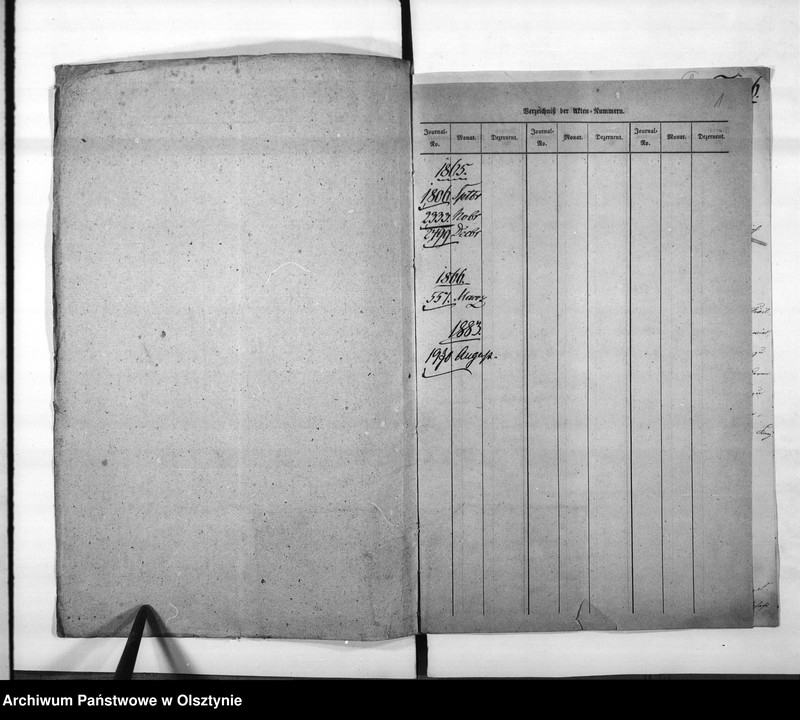 1
Verzeichniß der Akten-Nummern.
Journal-No. Monat. Dezernent. Journal-No. Monat. Dezernent. Journal-No. Monat. Dezernent.
1865.
1806. Septbr
2333. Novbr
2799 Decbr
1866.
557. Maerz
1883.
August.
Archiwum Państwowe w Olsztynie